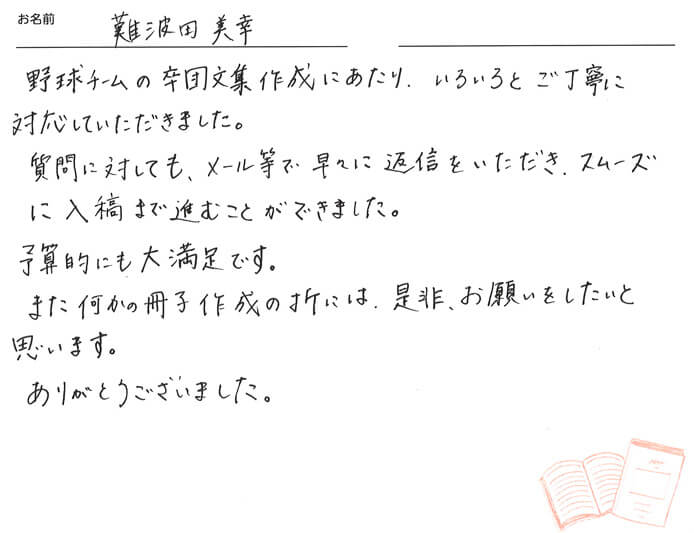 お名前 難波田 美幸
野球チームの卒団文集作成にあたり、いろいろとご丁寧に
対応していただきました。
質問に対しても、メール等で早々に返信をいただき、スムーズ
に入稿まで進むことができました。
予算的にも大満足です。
また何かの冊子作成の折には、是非、お願いをしたいと
思います。
ありがとうございました。